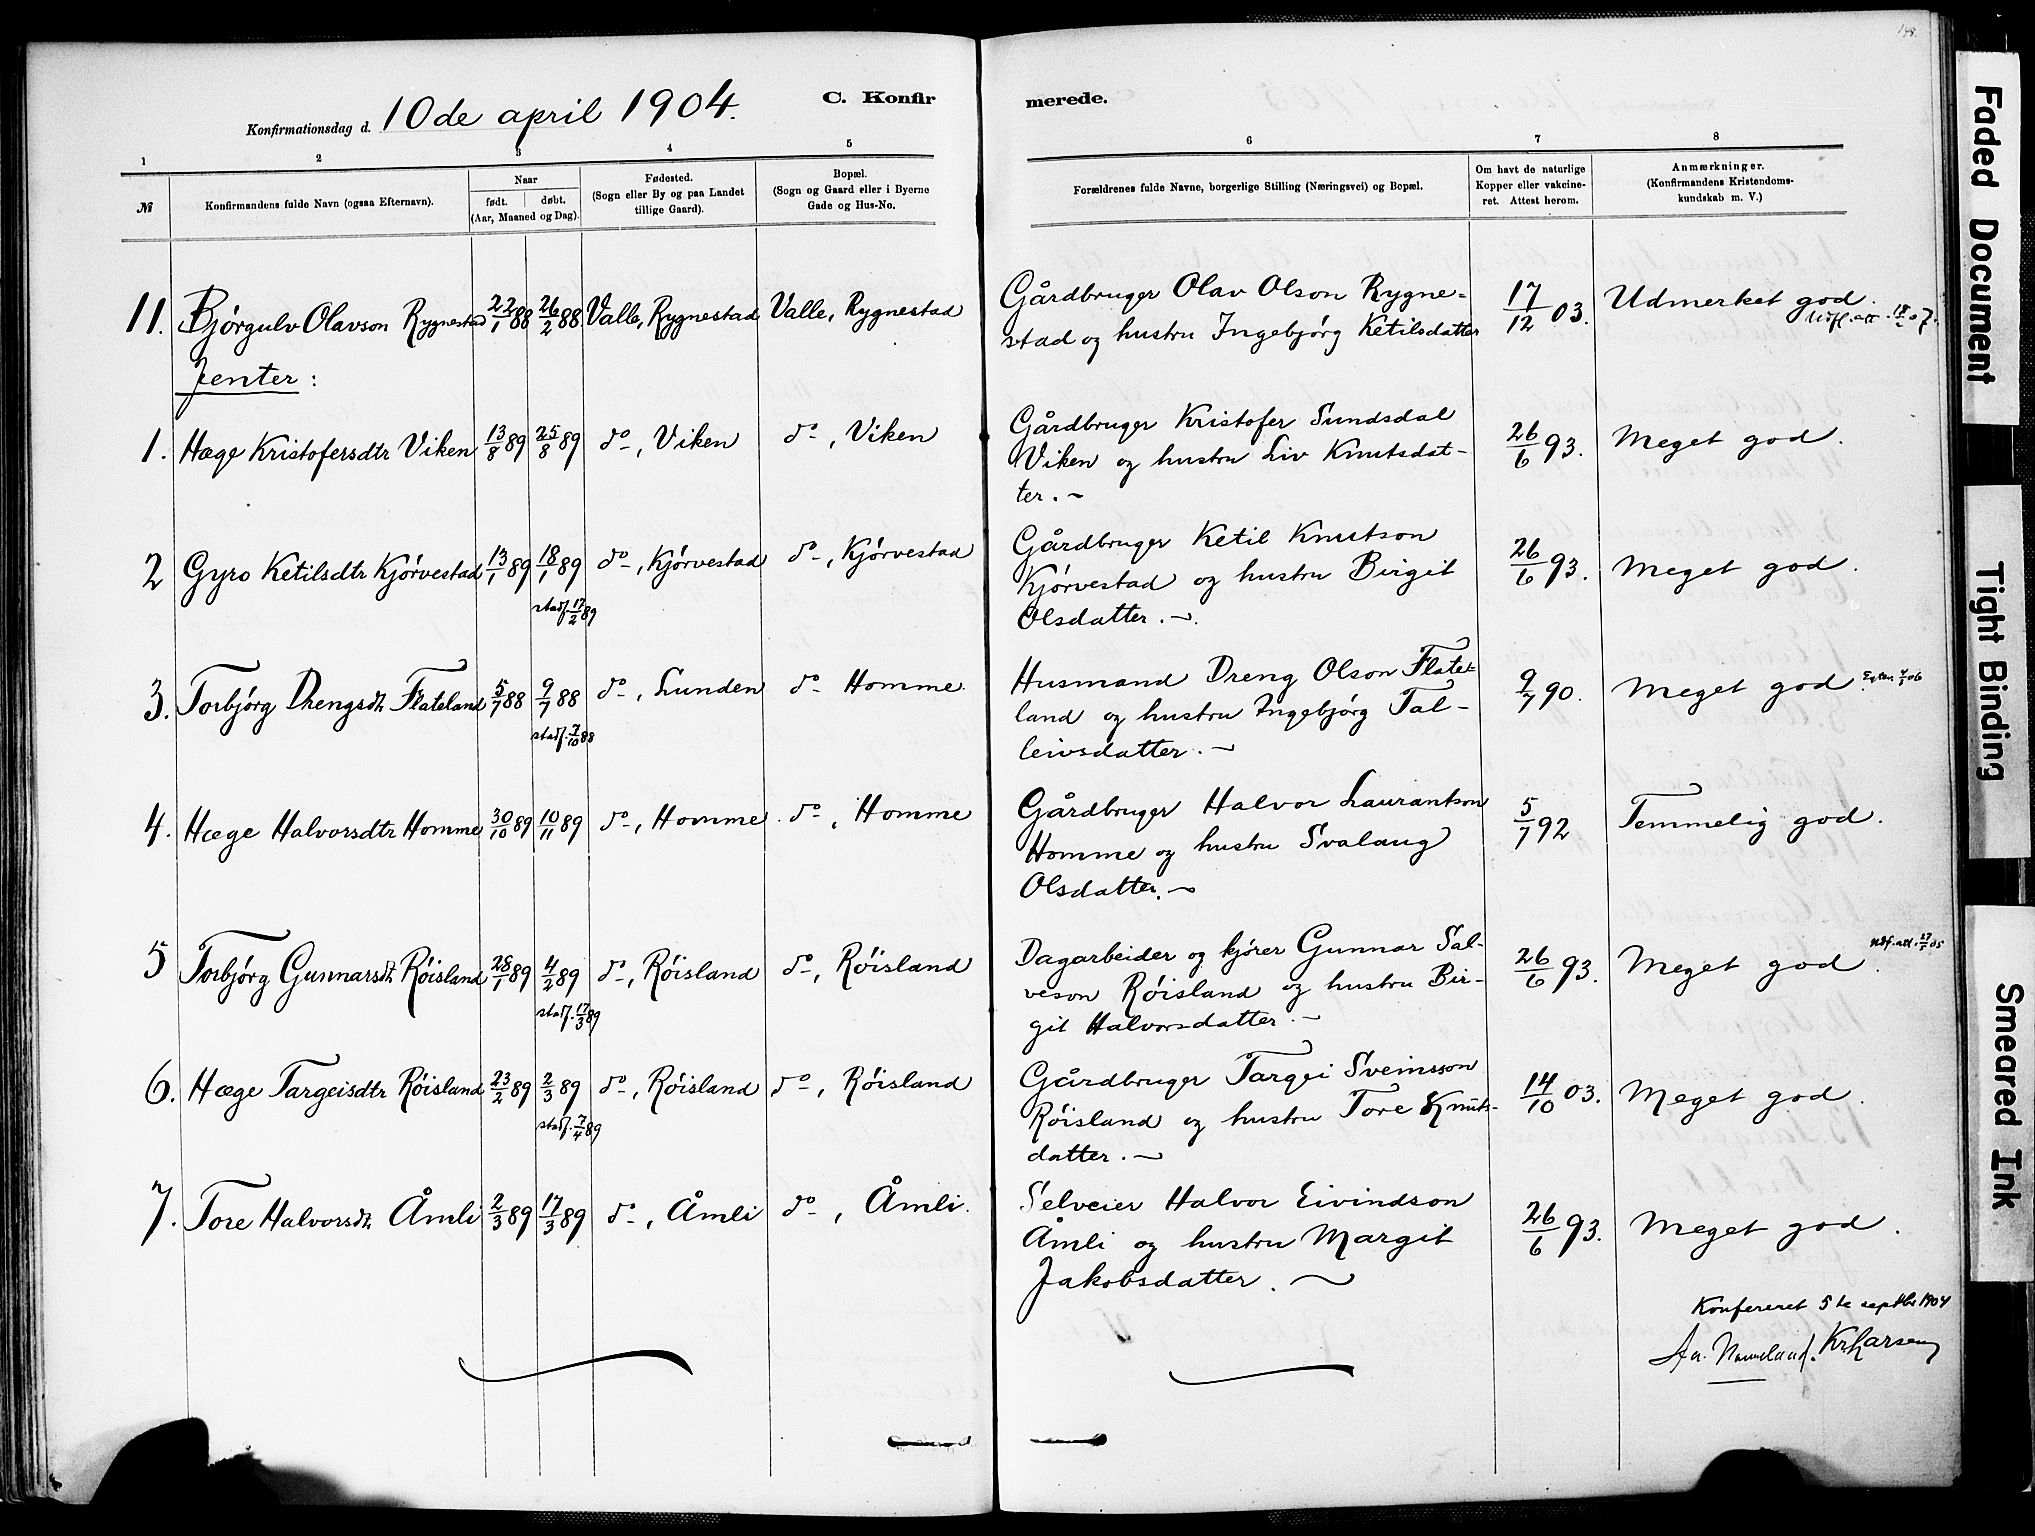 148.
10de april 1904.
C. Konfir
merede.
Konfirmationsdag d.
1
2
3
4
5
6
7
8
№
Konfirmandens fulde Navn (ogsaa Efternavn).
Naar
født.
døbt.
(Aar, Maaned og Dag).
Fødested.
(Sogn eller By og paa Landet
tillige Gaard).
Bopæl.
(Sogn og Gaard eller i Byerne
Gade og Hus-No.
Forældrenes fulde Navne, borgerlige Stilling (Næringsvei) og Bopæl.
Om havt de naturlige
Kopper eller vakcine-
ret. Attest herom.
Anmærkninger.
(Konfirmandens Kristendoms-
kundskab m. V.)
11. Bjørgulv Olavson Rygnestad 22/1 88 26/2 88 Valle, Rygnestad Valle, Rygnestad
Gårdbruger Olav Olson Rygne-
stad og hustru Ingebjørg Ketilsdatter
17/12 03. Udmerket god.
Udfl. att.
Jenter:
1. Hæge Kristofersdtr Viken 13/8 89 25/8 89 do, Viken do, Viken
Gårdbruger Kristofer Sundsdal
Viken og hustru Liv Knutsdat-
ter. ~
26/6 93. Meget god.
2 Gyro Ketilsdtr Kjørvestad 13/1 89 18/1 89 do, Kjørvestad do, Kjørvestad
stadf. 17/2 89
Gårdbruger Ketil Knutson
Kjørvestad og hustru Birgit
Olsdatter. ~.
26/6 93. Meget god.
3. Torbjørg Drengsdtr Flateland 5/7 88 9/7 88 do, Lunden do Homme.
stadf. 7/10 88
Husmand Dreng Olson Flate-
land og hustru Ingebjørg Tal-
leivsdatter. ~
9/7 90. Meget god.
4. Hæge Halvorsdtr Homme 30/10 89 10/11 89 do, Homme. do, Homme
Gårdbruger Halvor Laurantson
Homme og hustru Svalaug
Olsdatter. ~
5/7 92 Temmelig god.
5 Torbjørg Gunnarsdtr Røisland 28/1 89 4/2 89 do, Røisland do, Røisland
stadf. 17/3 89
Dagarbeider og kjører Gunnar Sal-
veson Røisland og hustru Bir-
git Halvorsdatter. ~
26/6 93. Meget god.
Udf. att. 27/5 05
6. Hæge Targeisdtr Røisland 23/2 89 2/3 89 do, Røisland do, Røisland
stadf. 7/4 89
Gårdbruger Targei Sveinsson
Røisland og hustru Tore Knuts-
datter. ~
14/10 03. Meget god.
7. Tore Halvorsdtr Åmli 2/3 89 17/3 89 do, Åmli do, Åmli.
Selveier Halvor Eivindson
Åmli og hustru Margit
Jakobsdatter. ~
26/6 93. Meget god.
Konfereret 5te septbr 1904
Aa. Nomeland. Kr Larsen
Faded Document
Tight Binding
Smeared Ink